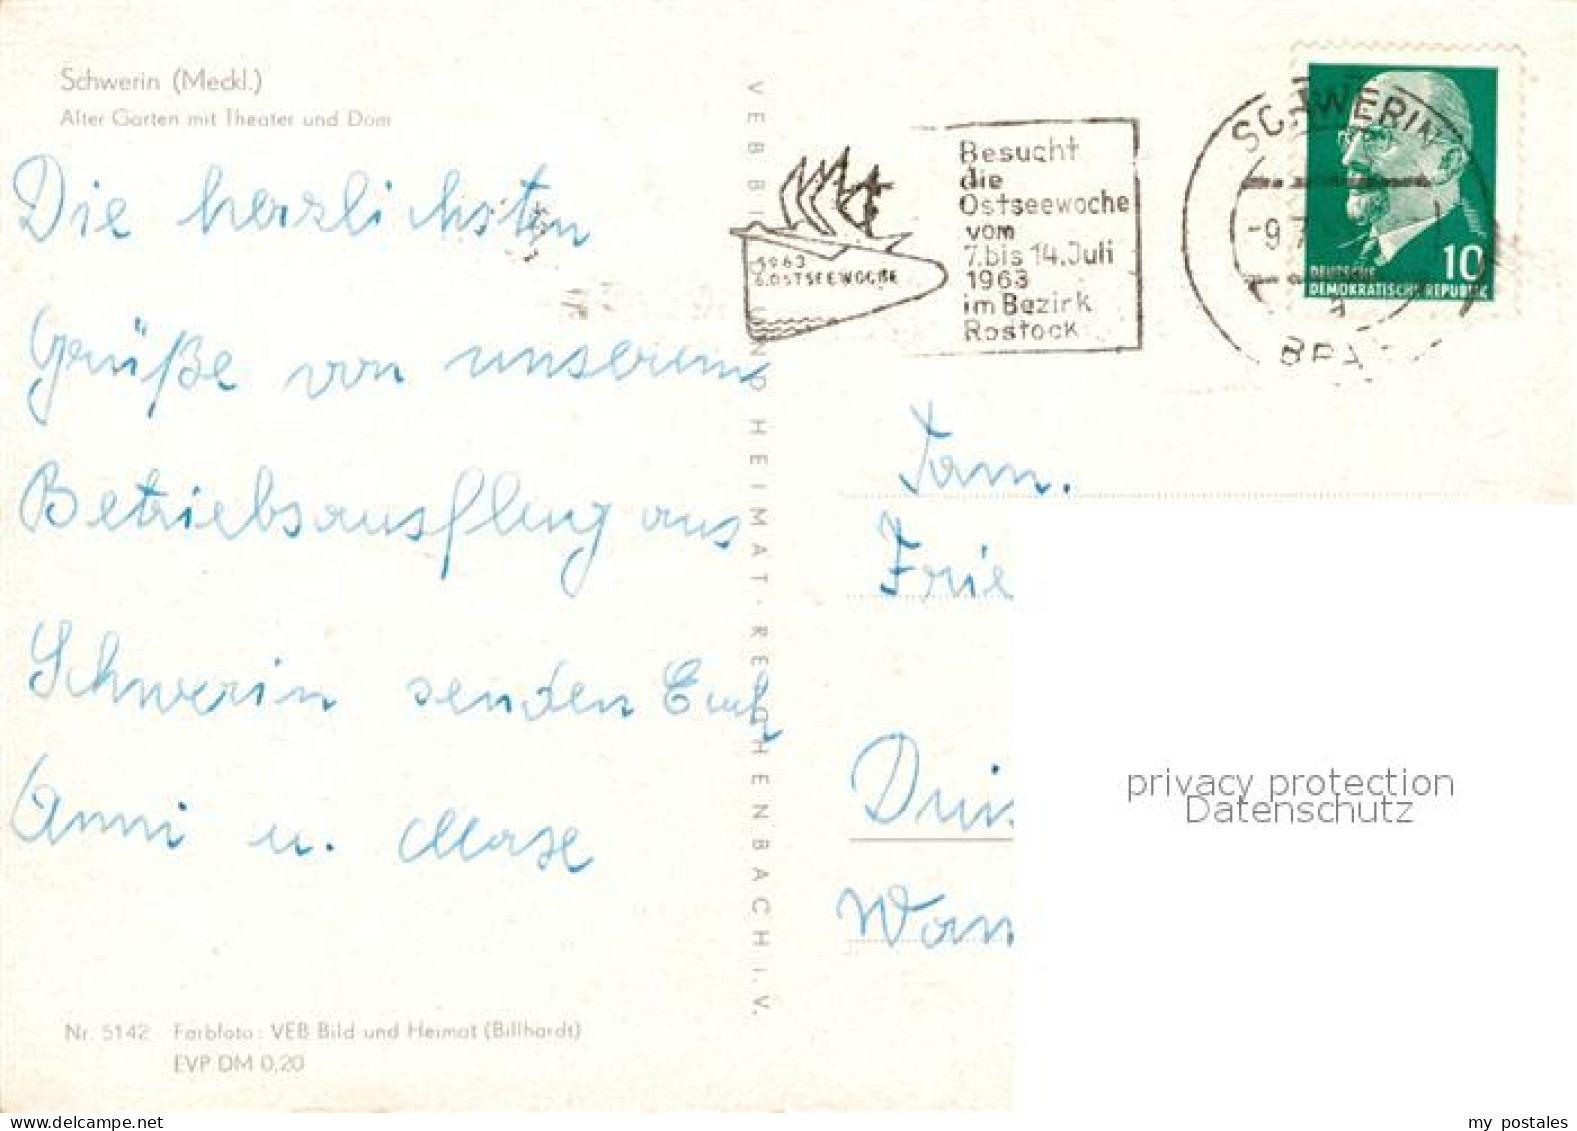 Schwerin (Meckl.)
Alter Garten mit Theater und Dom
Die herzlichsten
Grüße von unserem
Betriebsausflug aus
Schwerin senden Euch
Anni u.
Nr. 5142 Farbfoto: VEB Bild und Heimat (Billhardt)
EVP DM 0,20
VEB BILD UND HEIMAT · REICHENBACH i. V.
1963
6. OSTSEEWOCHE
Besucht
die
Ostseewoche
vom
7. bis 14. Juli
1963
im Bezirk
Rostock
SCHWERIN
-9.7
BPA
10
DEUTSCHE
DEMOKRATISCHE REPUBLIK
Fam.
Frie
Wan
privacy protection
Datenschutz
my postales